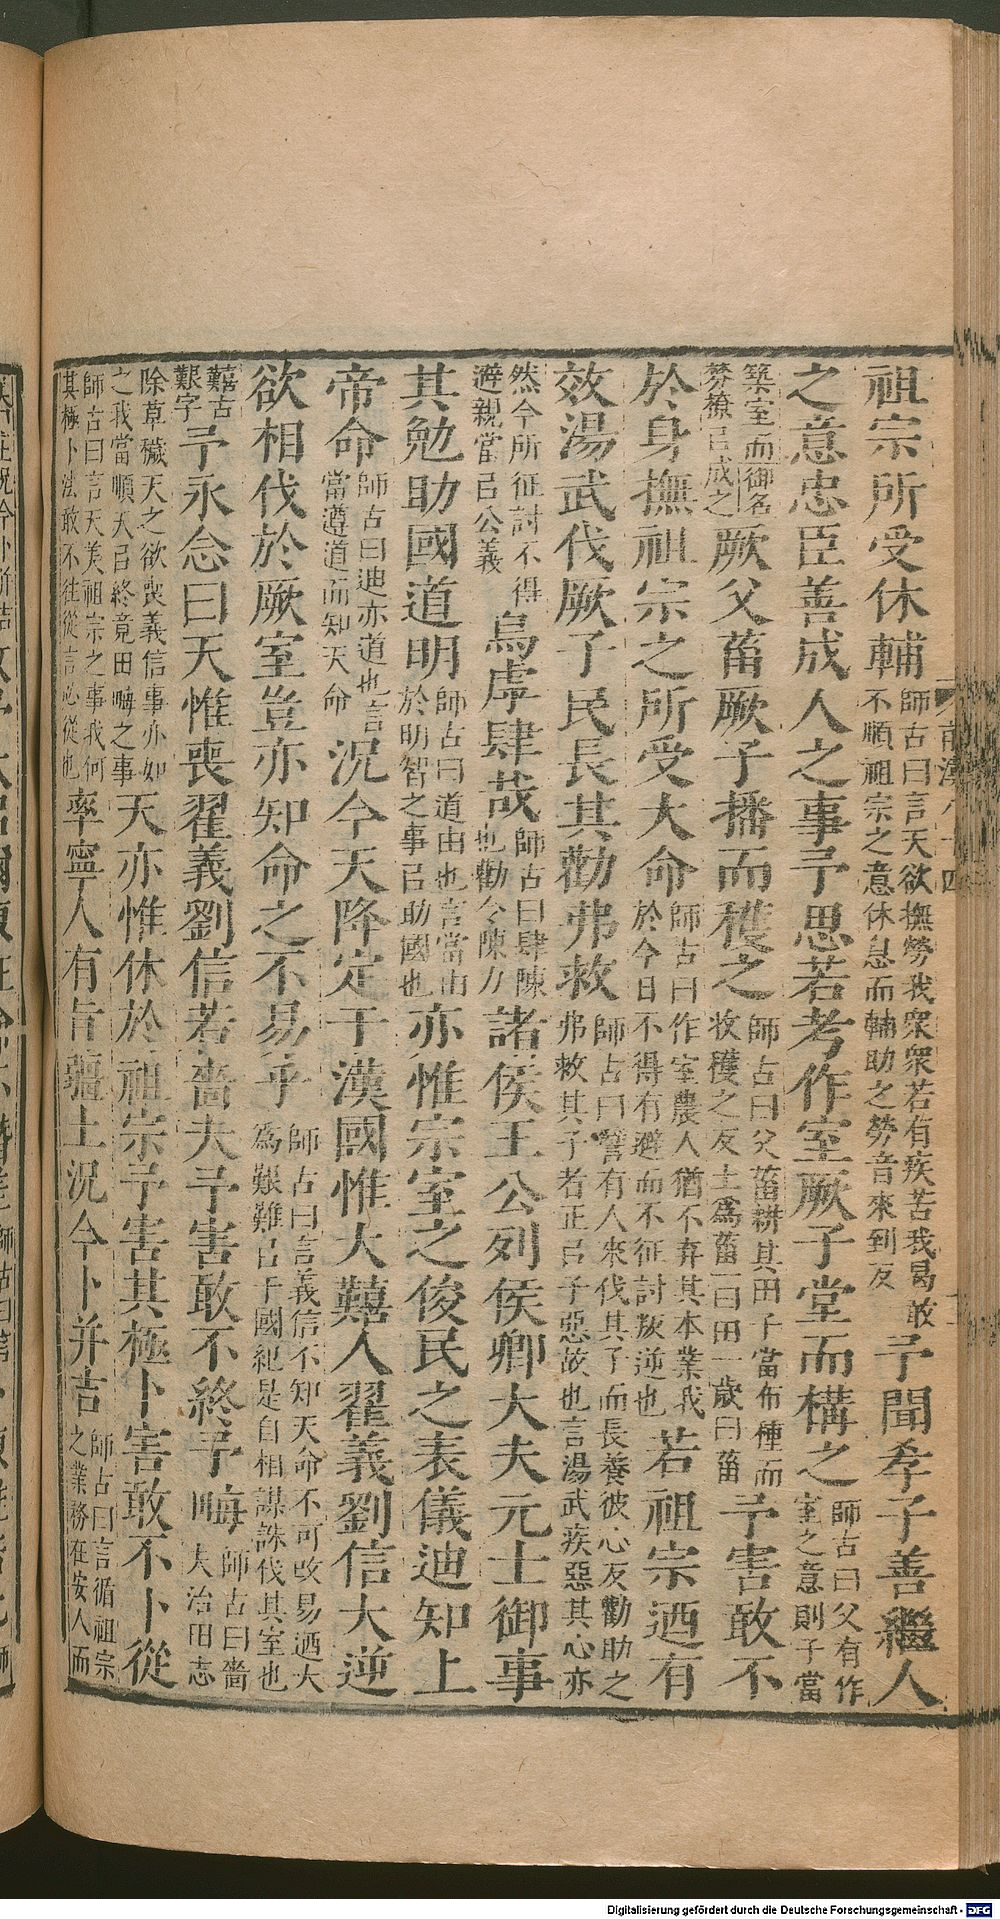 祖宗所受休輔師古曰言天欲撫勞我衆衆若有疾苦我曷敢不順祖宗之意休息而輔助之勞音來到反予聞孝子善繼人
之意忠臣善成人之事予思若考作室厥子堂而構之師古曰父有作室之意則子當
築室而御名棼橑㠯成之厥父菑厥子播而穫之師古曰父菑耕其田子當布種而收穫之反土爲菑一曰田一歲曰菑予害敢不
於身撫祖宗之所受大命師古曰作室農人猶不弃其本業我於今日不得有避而不征討叛逆也若祖宗迺有
效湯武伐厥子民長其勸弗救師古曰譬有人來伐其子而長養彼心反勸助之弗救其子者正㠯子惡故也言湯武疾惡其心亦
然今所征討不得避親當㠯公義烏虖肆哉師古曰肆陳也勸令陳力諸侯王公列侯卿大夫元士御事
其勉助國道明師古曰道由也言當由於明智之事㠯助國也亦惟宗室之俊民之表儀迪知上
帝命師古曰迪亦道也言當遵道而知天命況今天降定于漢國惟大囏人翟義劉信大逆
欲相伐於厥室豈亦知命之不易乎師古曰言義信不知天命不可改易迺大爲艱難㠯干國紀是自相謀誅伐其室也
囏古艱字予永念曰天惟喪翟義劉信若嗇夫予害敢不終予畮師古曰嗇夫治田志
除草穢天之欲喪義信事亦如之我當順天㠯終竟田畮之事天亦惟休於祖宗予害其極卜害敢不卜從
師古曰言天美祖宗之事我何其極卜法敢不往從言必從也率寧人有旨疆土況今卜并吉師古曰言循祖宗之業務在安人而
前漢八十四
Digitalisierung gefördert durch die Deutsche Forschungsgemeinschaft - DFG